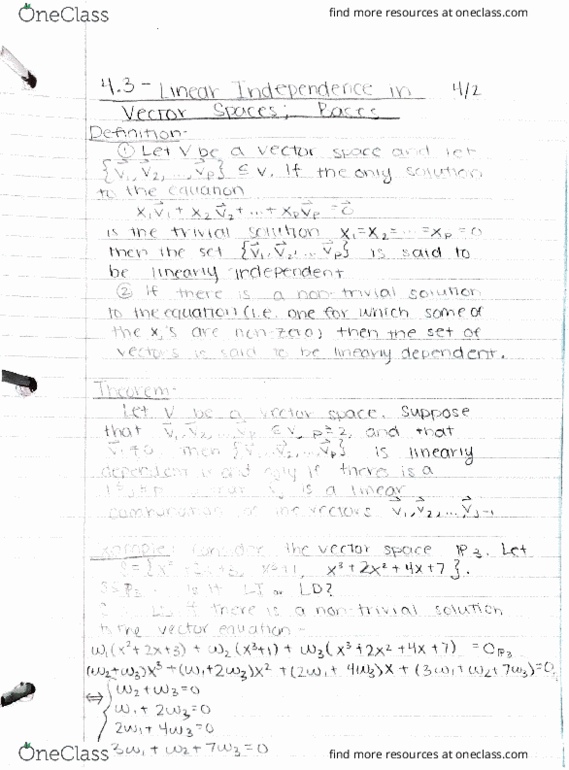 OneClass
find more resources at oneclass.com
4.3 - Linear Independence in 4/2
Vector Spaces; Bases
Definition-
① Let V be a vector space and let
{v⃗₁, v⃗₂, ..., v⃗ₚ} ⊆ V. If the only solution
to the equation
x₁v⃗₁ + x₂v⃗₂ + ... + xₚv⃗ₚ = 0⃗
is the trivial solution x₁=x₂=...=xₚ=0
then the set {v⃗₁, v⃗₂, ... v⃗ₚ} is said to
be linearly independent
② If there is a non-trivial solution
to the equation (i.e. one for which some of
the xᵢ's are non-zero) then the set of
vectors is said to be linearly dependent.
Theorem-
Let V be a vector space. Suppose
that v⃗₁, v⃗₂, ... v⃗ₚ ∈ V, p≥2, and that
v⃗₁≠0. Then {v⃗₁, v⃗₂, ... v⃗ₚ} is linearly
dependent if and only if there is a
is a linear
combination of the vectors v⃗₁, v⃗₂, ..., v⃗ⱼ₋₁
Example: Consider the vector space ℙ₃. Let
S = {x²+2x+3, x³+1, x³+2x²+4x+7}.
Is it LI or LD?
LD if there is a non-trivial solution
to the vector equation-
w₁(x²+2x+3) + w₂(x³+1) + w₃(x³+2x²+4x+7) = 0ℙ₃
(w₂+w₃)x³+(w₁+2w₃)x²+(2w₁+4w₃)x+(3w₁+w₂+7w₃)=0
⇔ { w₂+w₃=0
w₁+2w₃=0
2w₁+4w₃=0
3w₁+w₂+7w₃=0
OneClass
find more resources at oneclass.com